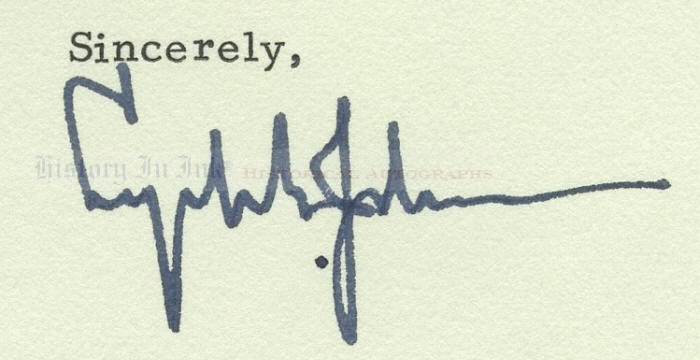 Sincerely,
History In Ink® HISTORICAL AUTOGRAPHS